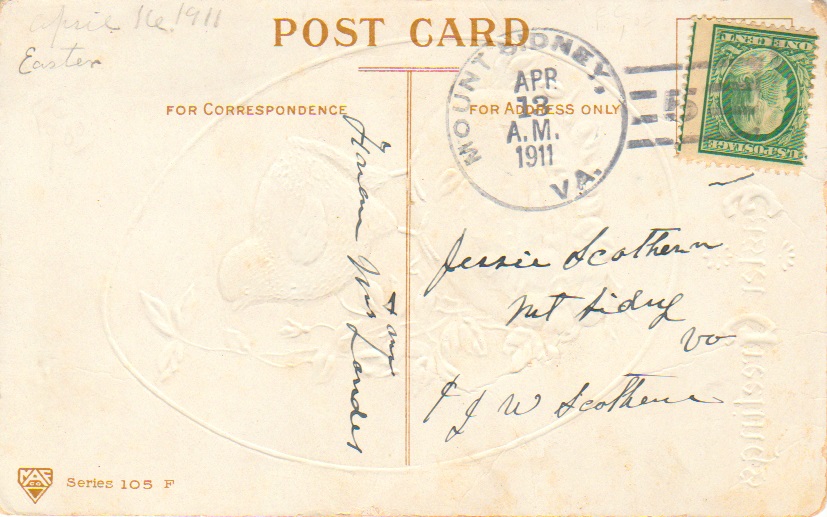 April 16 1911
Easter
POST CARD
FOR CORRESPONDENCE
FOR ADDRESS ONLY
MOUNT SIDNEY, VA.
APR
13
A.M.
1911
5
U.S. POSTAGE
ONE CENT
From Mrs Landes
Jessie Scothern
Mt Sidney
Va
J W Scothern
Easter Greetings
Series 105 F